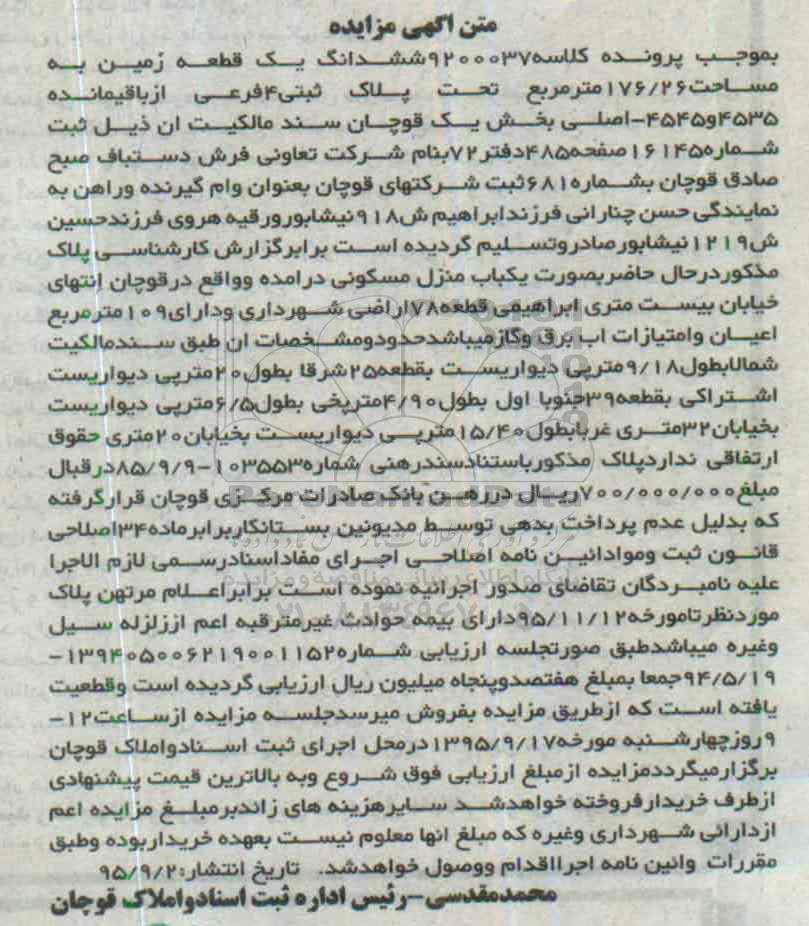 متن اگهی مزایده
بموجب پرونده کلاسه۹۲۰۰۰۳۷ششدانگ یک قطعه زمین به
مساحت۱۷۶/۲۶مترمربع تحت پلاک ثبتی۴فرعی ازباقیمانده
۴۵۳۵و۴۵۴۵-اصلی بخش یک قوچان سند مالکیت ان ذیل ثبت
شماره۱۶۱۴۵صفحه۴۸۵دفتر۷۲بنام شرکت تعاونی فرش دستباف صبح
صادق قوچان بشماره۶۸۱ثبت شرکتهای قوچان بعنوان وام گیرنده وراهن به
نمایندگی حسن چنارانی فرزندابراهیم ش۹۱۸نیشابورورقیه هروی فرزندحسین
ش۱۲۱۹نیشابورصادروتسلیم گردیده است برابرگزارش کارشناسی پلاک
مذکوردرحال حاضربصورت یکباب منزل مسکونی درامده وواقع درقوچان انتهای
خیابان بیست متری ابراهیمی قطعه۷۸اراضی شهرداری ودارای۱۰۹مترمربع
اعیان وامتیازات اب برق وگازمیباشدحدودومشخصات ان طبق سندمالکیت
شمالابطول۹/۱۸مترپی دیواریست بقطعه۲۵شرقا بطول۲۰مترپی دیواریست
اشتراکی بقطعه۳۹جنوبا اول بطول۴/۹۰مترپخی بطول۶/۵مترپی دیواریست
بخیابان۳۲متری غربابطول۱۵/۴۰مترپی دیواریست بخیابان۲۰متری حقوق
ارتفاقی نداردپلاک مذکورباستنادسندرهنی شماره۱۰۳۵۵۳-۸۵/۹/۹درقبال
مبلغ۷۰۰/۰۰۰/۰۰۰ریال دررهن بانک صادرات مرکزی قوچان قرارگرفته
که بدلیل عدم پرداخت بدهی توسط مدیونین بستانکاربرابرماده۳۴اصلاحی
قانون ثبت وموادائین نامه اصلاحی اجرای مفاداسنادرسمی لازم الاجرا
علیه نامبردگان تقاضای صدور اجرائیه نموده است برابراعلام مرتهن پلاک
موردنظرتامورخه۹۵/۱۱/۱۲دارای بیمه حوادث غیرمترقبه اعم اززلزله سیل
وغیره میباشدطبق صورتجلسه ارزیابی شماره۱۳۹۴۰۵۰۰۶۲۱۹۰۰۱۱۵۲-
۹۴/۵/۱۹جمعا بمبلغ هفتصدوپنجاه میلیون ریال ارزیابی گردیده است وقطعیت
یافته است که ازطریق مزایده بفروش میرسدجلسه مزایده ازساعت۱۲-
۹روزچهارشنبه مورخه۱۳۹۵/۹/۱۷درمحل اجرای ثبت اسنادواملاک قوچان
برگزارمیگرددمزایده ازمبلغ ارزیابی فوق شروع وبه بالاترین قیمت پیشنهادی
ازطرف خریدارفروخته خواهدشد سایرهزینه های زائدبرمبلغ مزایده اعم
ازدارائی شهرداری وغیره که مبلغ انها معلوم نیست بعهده خریداربوده وطبق
مقررات وائین نامه اجرااقدام ووصول خواهدشد. تاریخ انتشار:۹۵/۹/۲
محمدمقدسی-رئیس اداره ثبت اسنادواملاک قوچان